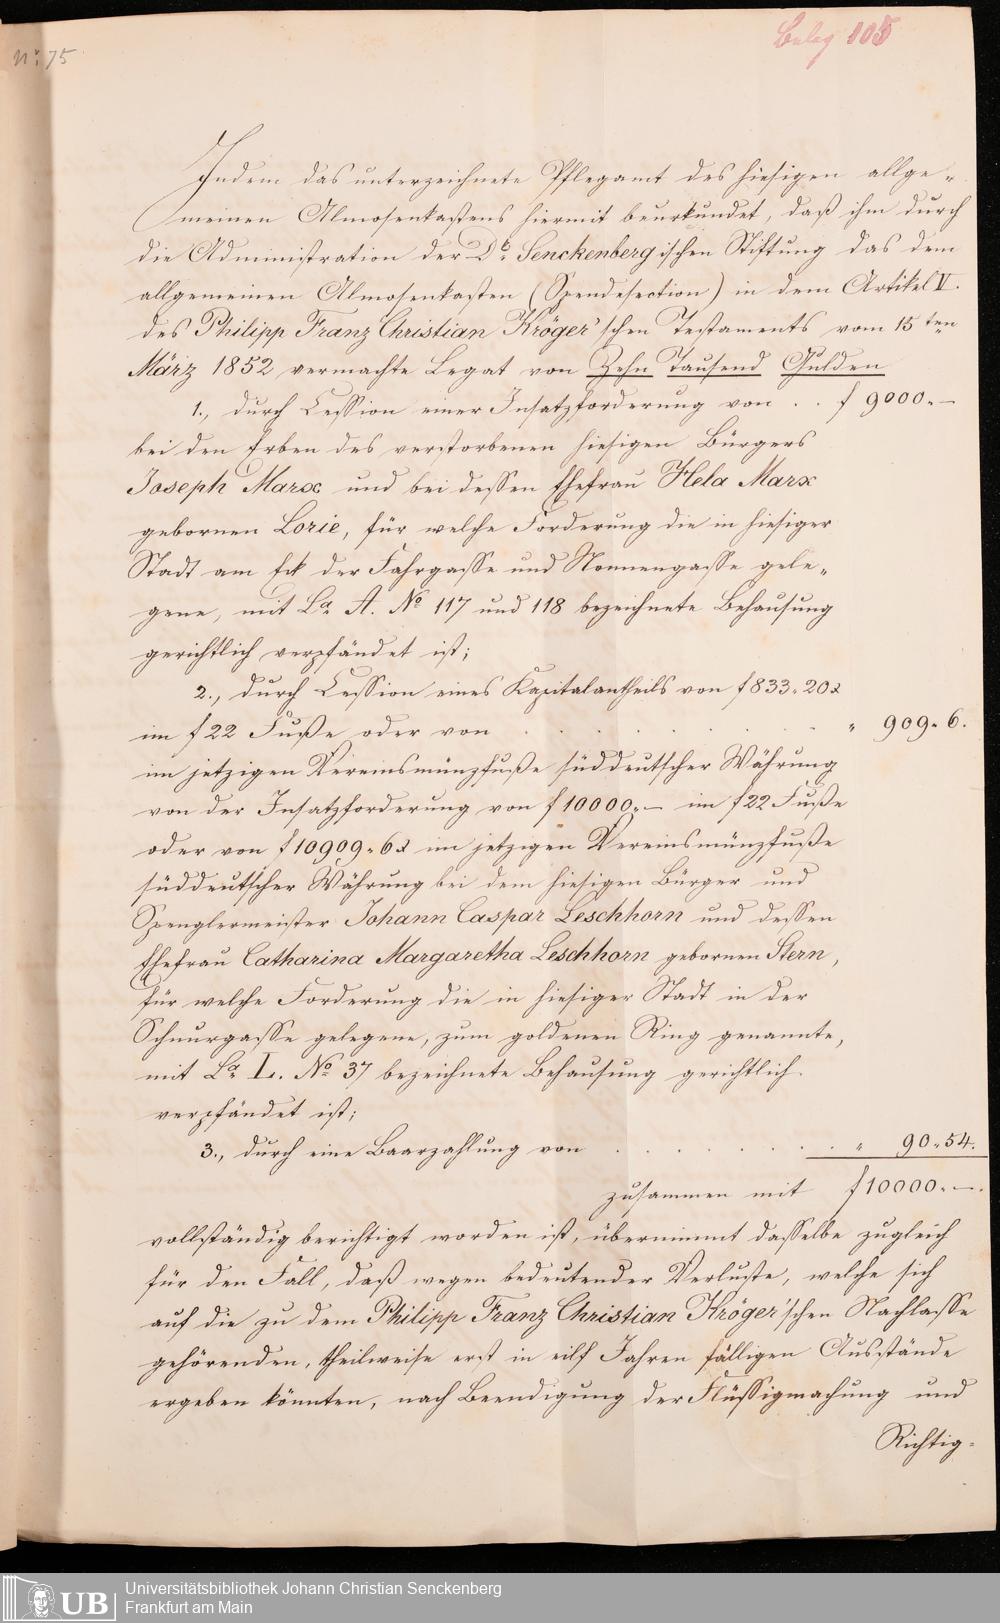 N: 75
Beleg 105
Indem das unterzeichnete Pflegamt des hiesigen allge-
meinen Almosenkastens hiermit beurkundet, daß ihm durch
die Administration der Dr. Senckenbergischen Stiftung das dem
allgemeinen Almosenkasten (Spendesection) in dem Artikel V.
des Philipp Franz Christian Kröger'schen Testaments vom 15ten
März 1852 vermachte Legat von Zehn Tausend Gulden
1., durch Cession einer Insatzforderung von . . f 9000.—
bei den Erben des verstorbenen hiesigen Bürgers
Joseph Marx und bei dessen Ehefrau Hela Marx
gebornen Lorie, für welche Forderung die in hiesiger
Stadt am Eck der Fahrgasse und Nonnengasse gele-
gene, mit La. A. No 117 und 118 bezeichnete Behausung
gerichtlich verpfändet ist;
2., durch Cession eines Kapitalantheils von f 833.20x
im f 22 Fuße oder von . . . . . . " 909.6.
im jetzigen Vereinsmünzfuße süddeutscher Währung
von der Insatzforderung von f 10000.— im f 22 Fuße
oder von f 10909.6x im jetzigen Vereinsmünzfuße
süddeutscher Währung bei dem hiesigen Bürger und
Spenglermeister Johann Caspar Leschhorn und dessen
Ehefrau Catharina Margaretha Leschhorn gebornen Stern,
für welche Forderung die in hiesiger Stadt in der
Schnurgasse gelegene, zum goldenen Ring genannte,
mit La. L. No 37 bezeichnete Behausung gerichtlich
verpfändet ist;
3., durch eine Baarzahlung von . . . . . . " 90.54.
zusammen mit f 10000.—.
vollständig berichtigt worden ist, übernimmt dasselbe zugleich
für den Fall, daß wegen bedeutender Verluste, welche sich
auf die zu dem Philipp Franz Christian Kröger'schen Nachlasse
gehörenden, theilweise erst in eilf Jahren fälligen Ausstände
ergeben könnten, nach Beendigung der Flüssigmachung und
Richtig-
UB
Universitätsbibliothek Johann Christian Senckenberg
Frankfurt am Main